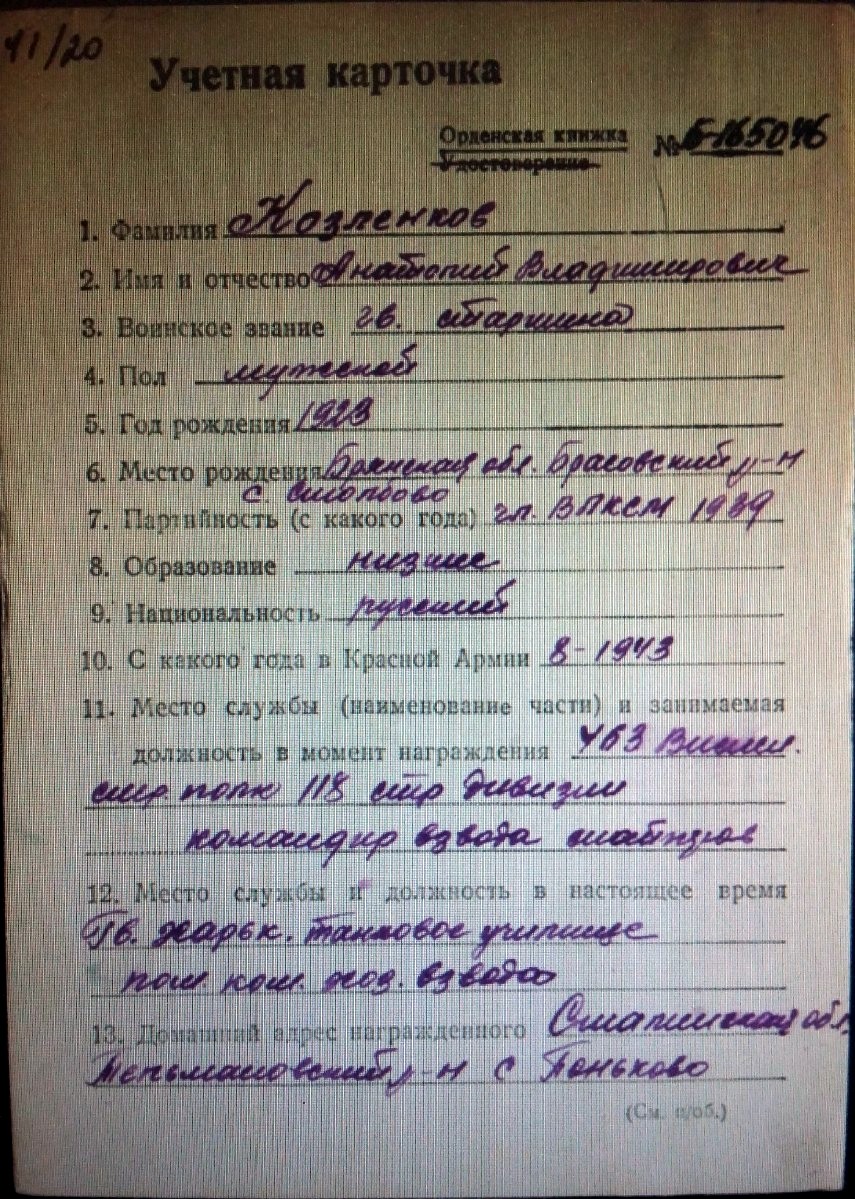 41/20
Учетная карточка
Орденская книжка
Удостоверение
№ Б-165046
1. Фамилия Козленков
2. Имя и отчество Анатолий Владимирович
3. Воинское звание гв. старшина
4. Пол мужской
5. Год рождения 1923
6. Место рождения Брянская обл. Брасовский р-н
с. Столбово
7. Партийность (с какого года) чл. ВЛКСМ 1939
8. Образование низшее
9. Национальность русский
10. С какого года в Красной Армии 8-1943
11. Место службы (наименование части) и занимаемая
должность в момент награждения 463
стр. полк 118 стр дивизии
командир взвота
12. Место службы и должность в настоящее время
Гв. Харьк. танковое училище
пом. ком. хоз. взвота
13. Домашний адрес награжденного Сталинская обл.
Тельмановский р-н с Коньково
(См. н/об.)